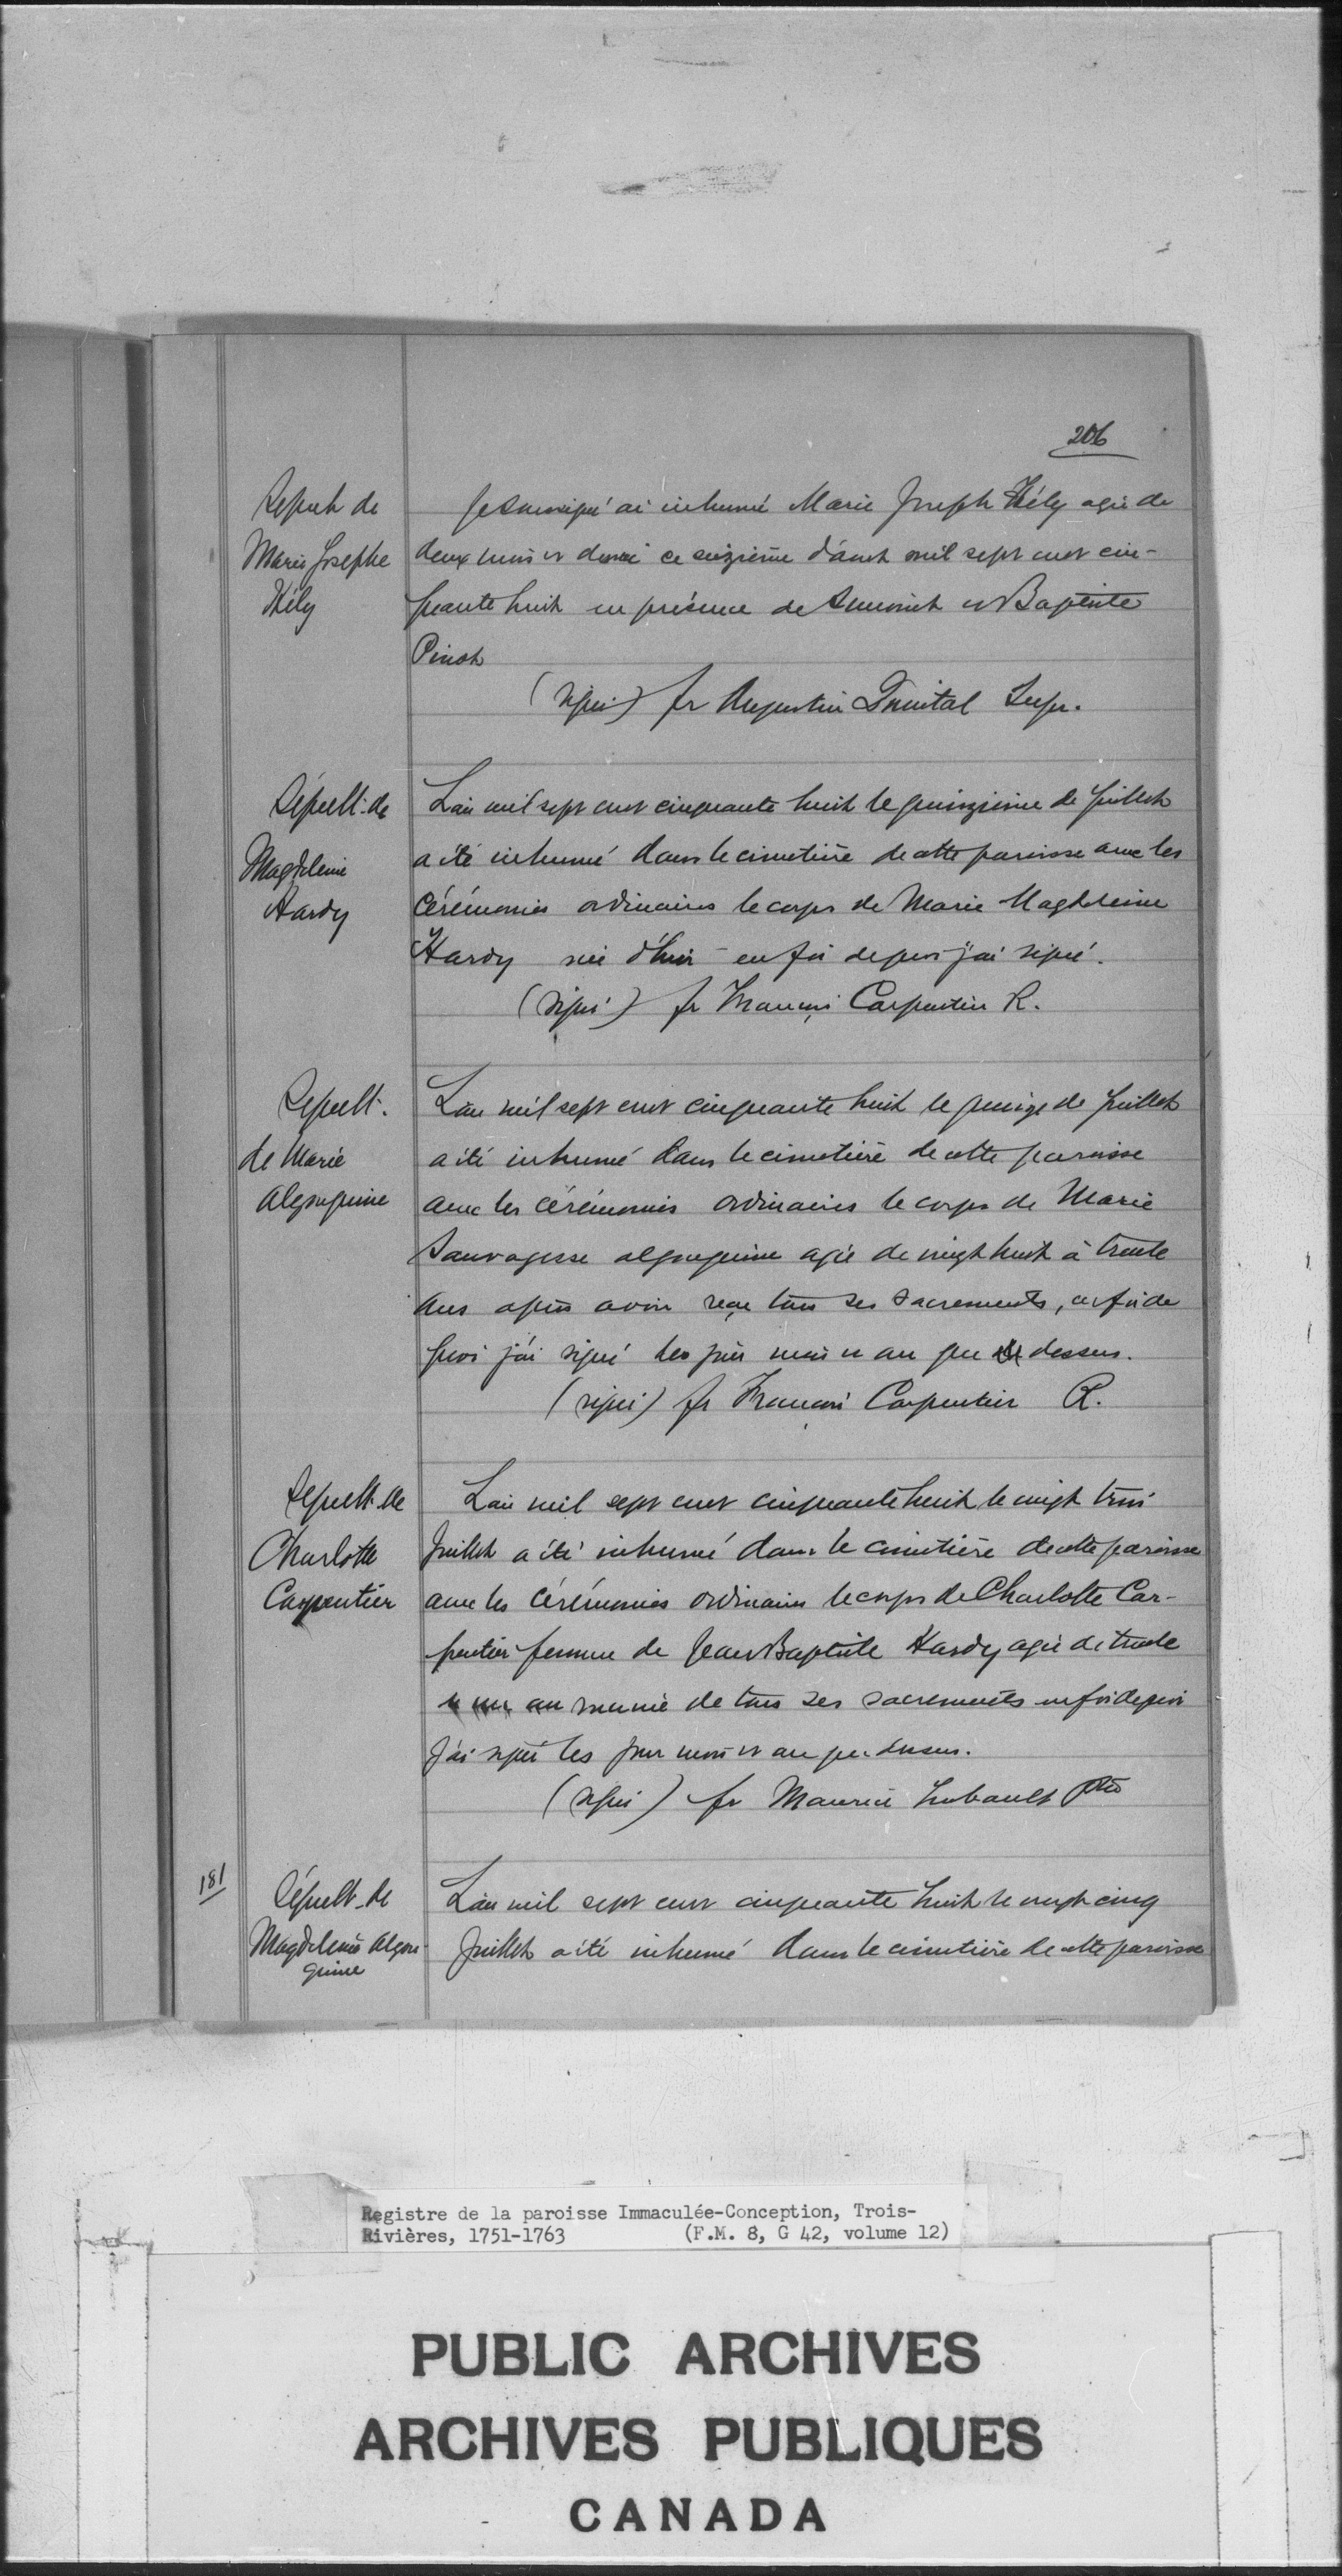 206
Sepult de
Marie Josephe
Hély
Je soussigné ai inhumé Marie Joseph Hély agée de
deux mois et demi ce seizième d'août mil sept cent cin-
quante huit en présence de et Baptiste
Pinot
(signé) fr Augustin Quintal Supr.
Sépult. de
Magdeleine
Hardy
L'an mil sept cent cinquante huit le quinzième de juillet
a été inhumé dans le cimetière de cette paroisse avec les
cérémonies ordinaires le corps de Marie Magdeleine
Hardy née d'hier en foi de quoi j'ai signé.
(signé) fr François Carpentier R.
Sepult.
de Marie
algonquine
L'an mil sept cent cinquante huit le quinze de juillet
a été inhumé dans le cimetière de cette paroisse
avec les cérémonies ordinaires le corps de Marie
Sauvagesse algonquine agée de vingt huit à trente
ans après avoir reçu tous ses sacrements, en foi de
quoi j'ai signé les jour mois et an que dessus.
(signé) fr François Carpentier R.
Sepult. de
Charlotte
Carpentier
L'an mil sept cent cinquante huit le vingt trois
Juillet a été inhumé dans le cimetière de cette paroisse
avec les cérémonies ordinaires le corps de Charlotte Car-
pentier femme de Jean Baptiste Hardy agée de trente
et un an munie de tous ses sacrements en foi de quoi
j'ai signé les jour mois et an que dessus.
(signé) fr Maurice Imbault ptre
181
Sépult. de
Magdeleine algon-
quine
L'an mil sept cent cinquante huit le vingt cinq
Juillet a été inhumé dans le cimetière de cette paroisse
Registre de la paroisse Immaculée-Conception, Trois-
Rivières, 1751-1763 (F.M. 8, G 42, volume 12)
PUBLIC ARCHIVES
ARCHIVES PUBLIQUES
CANADA